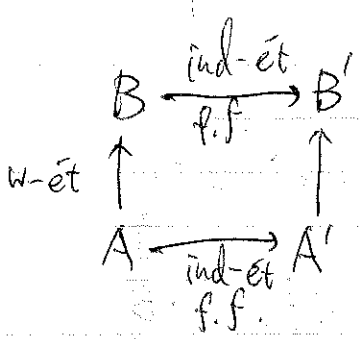 ind-ét
B B'
f.f
w-ét
A A'
ind-ét
f.f.